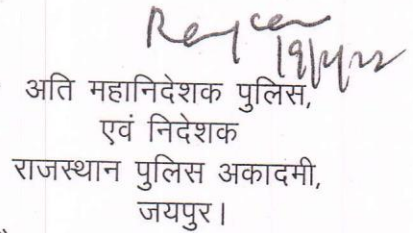 19/4/22
अति महानिदेशक पुलिस,
एवं निदेशक
राजस्थान पुलिस अकादमी,
जयपुर।